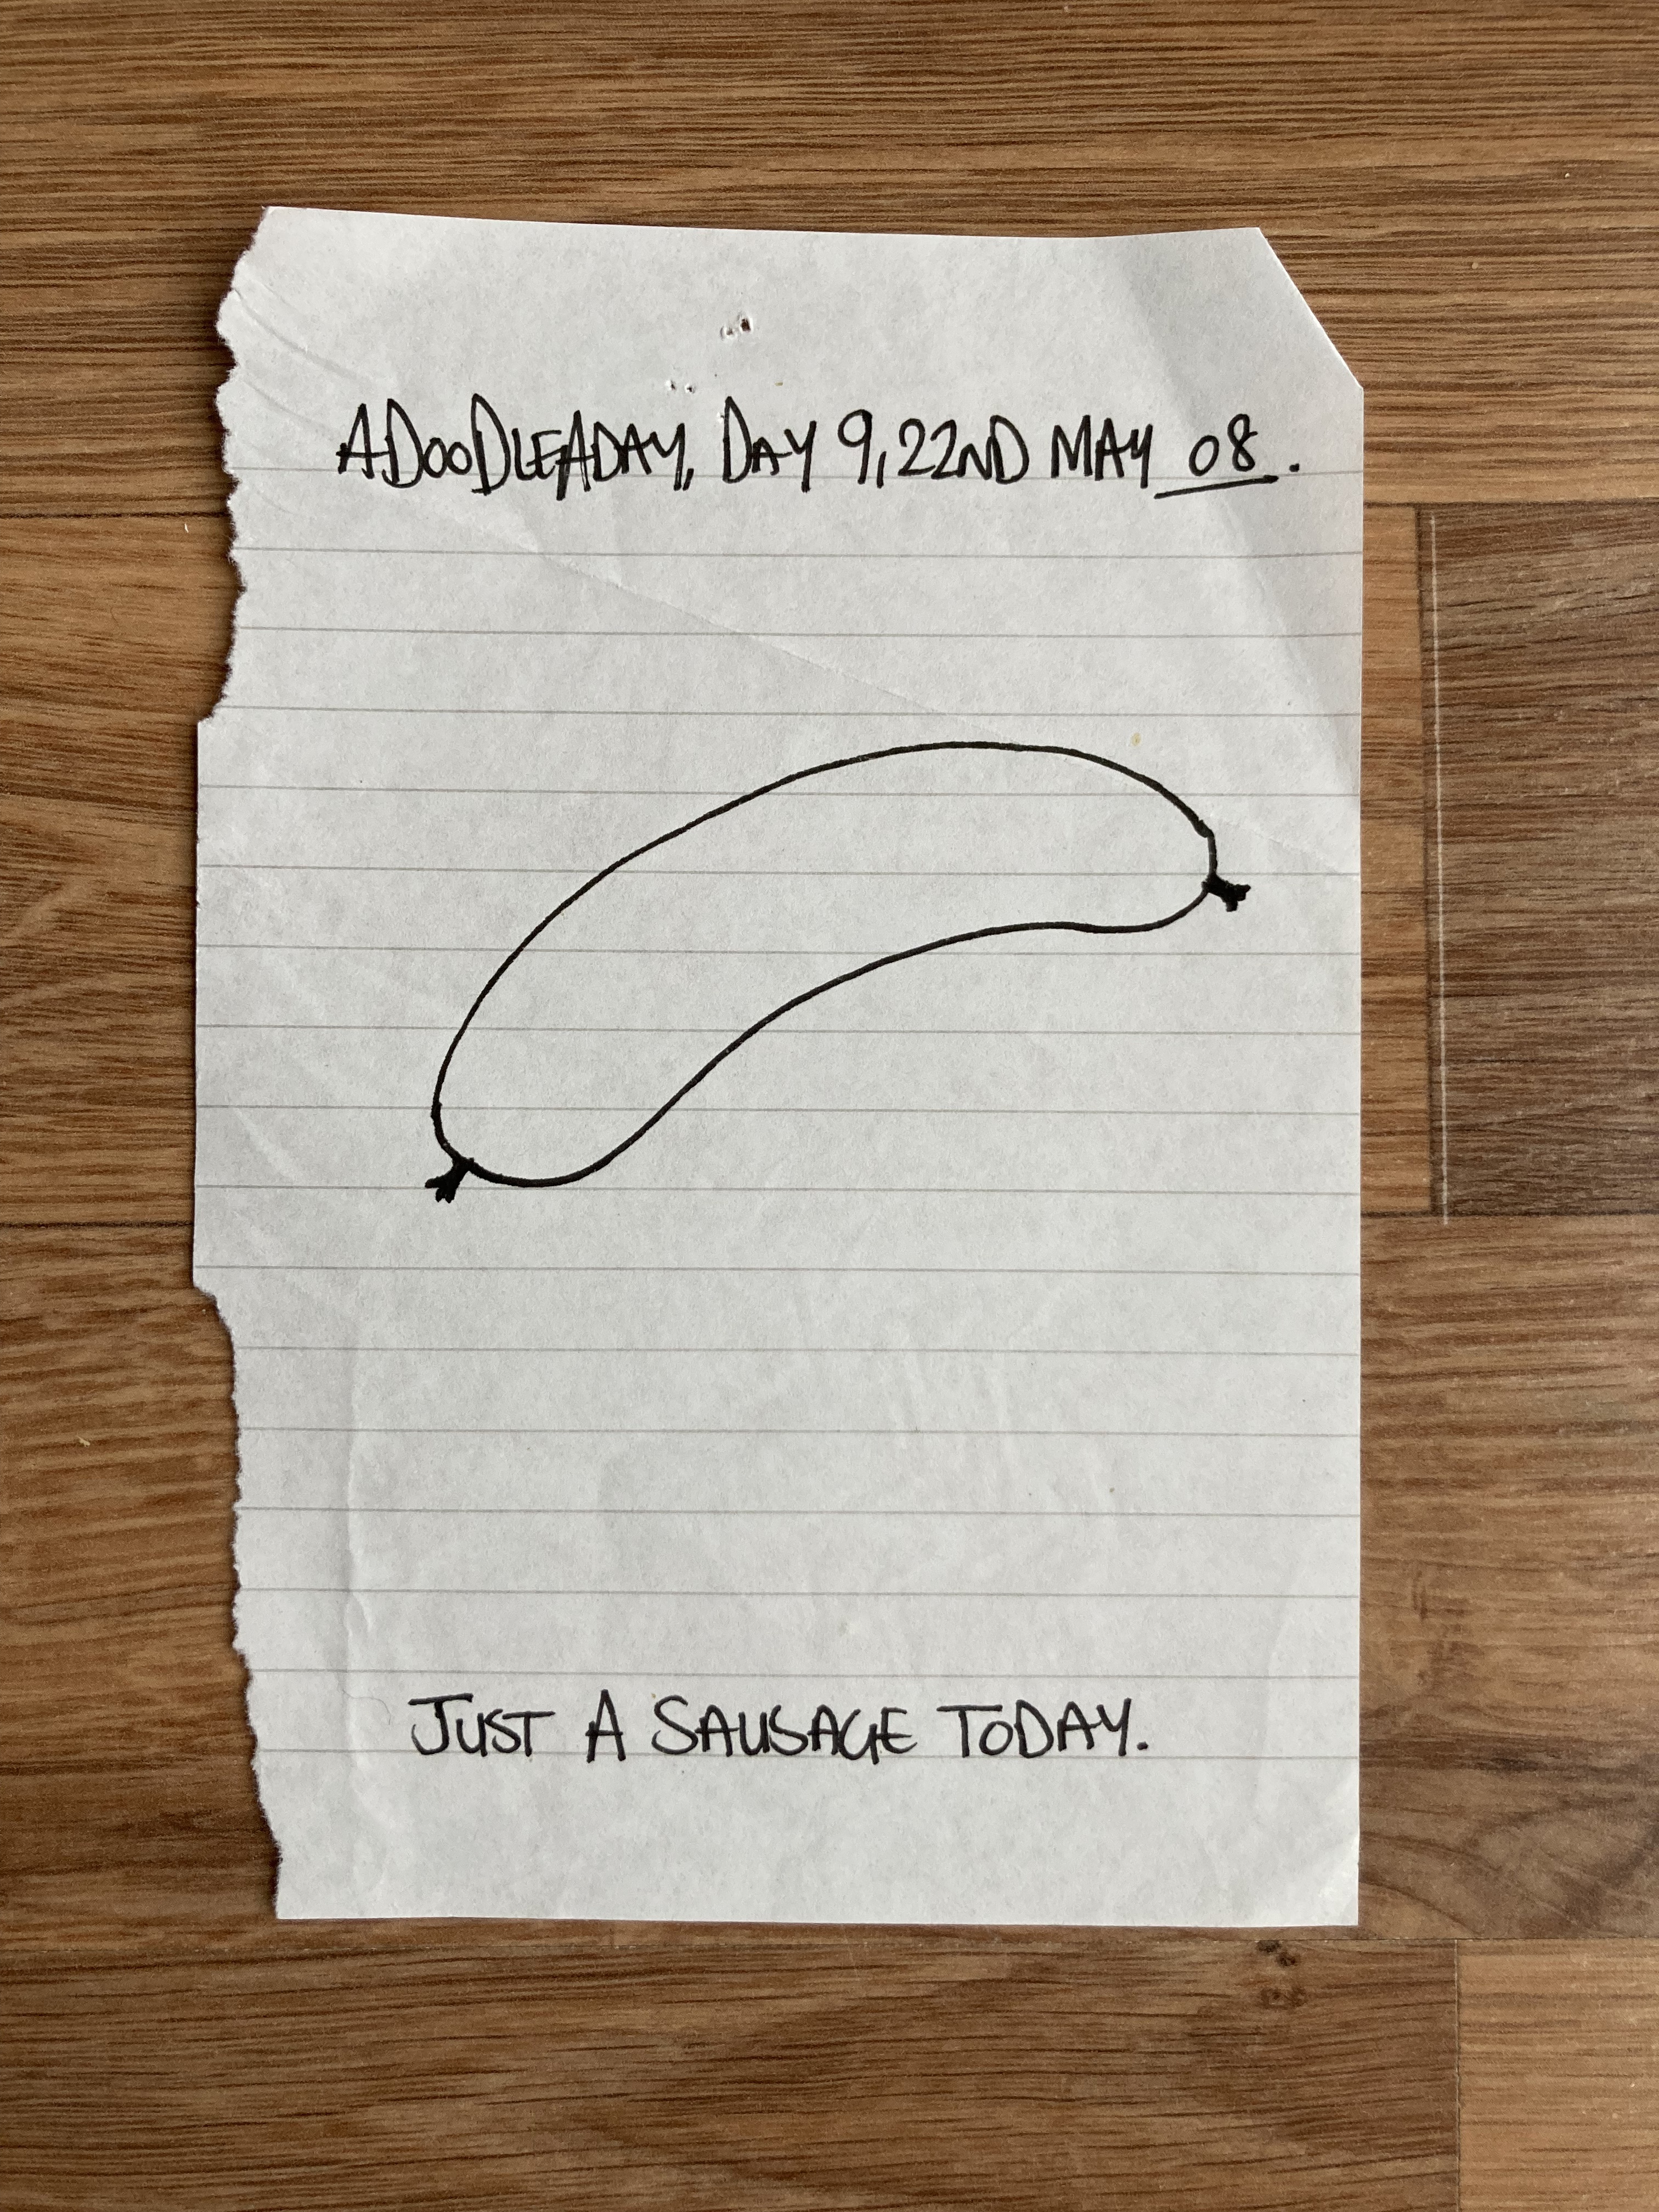 ADOODLEADAY, DAY 9, 22ND MAY 08.
JUST A SAUSAGE TODAY.